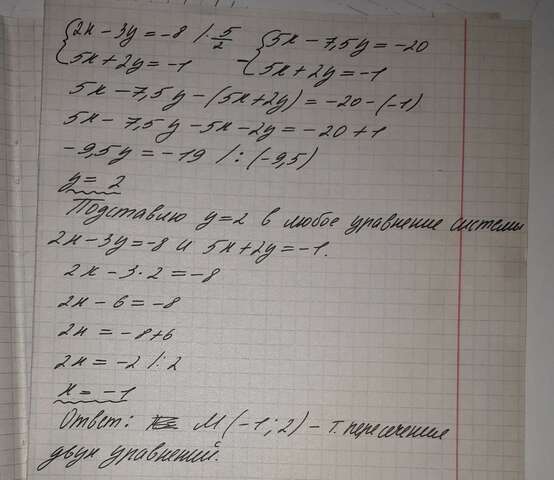 {2x - 3y = -8 / · 5/2 {5x - 7,5y = -20
{5x + 2y = -1 - {5x + 2y = -1
5x - 7,5y - (5x + 2y) = -20 - (-1)
5x - 7,5y - 5x - 2y = -20 + 1
-9,5y = -19 / : (-9,5)
y = 2
Подставлю y = 2 в любое уравнение системы
2x - 3y = -8 и 5x + 2y = -1.
2x - 3 · 2 = -8
2x - 6 = -8
2x = -8 + 6
2x = -2 / : 2
x = -1
Ответ: M (-1; 2) - т. пересечение
двух уравнений.